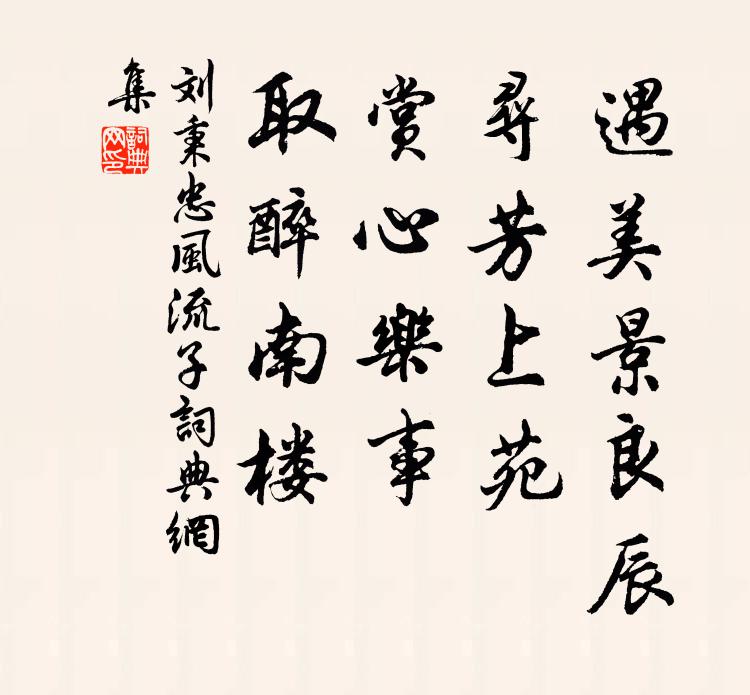 遇美景良辰
尋芳上苑
賞心樂事
取醉南楼
刘秉忠風流子詞典網
集
詞典網印